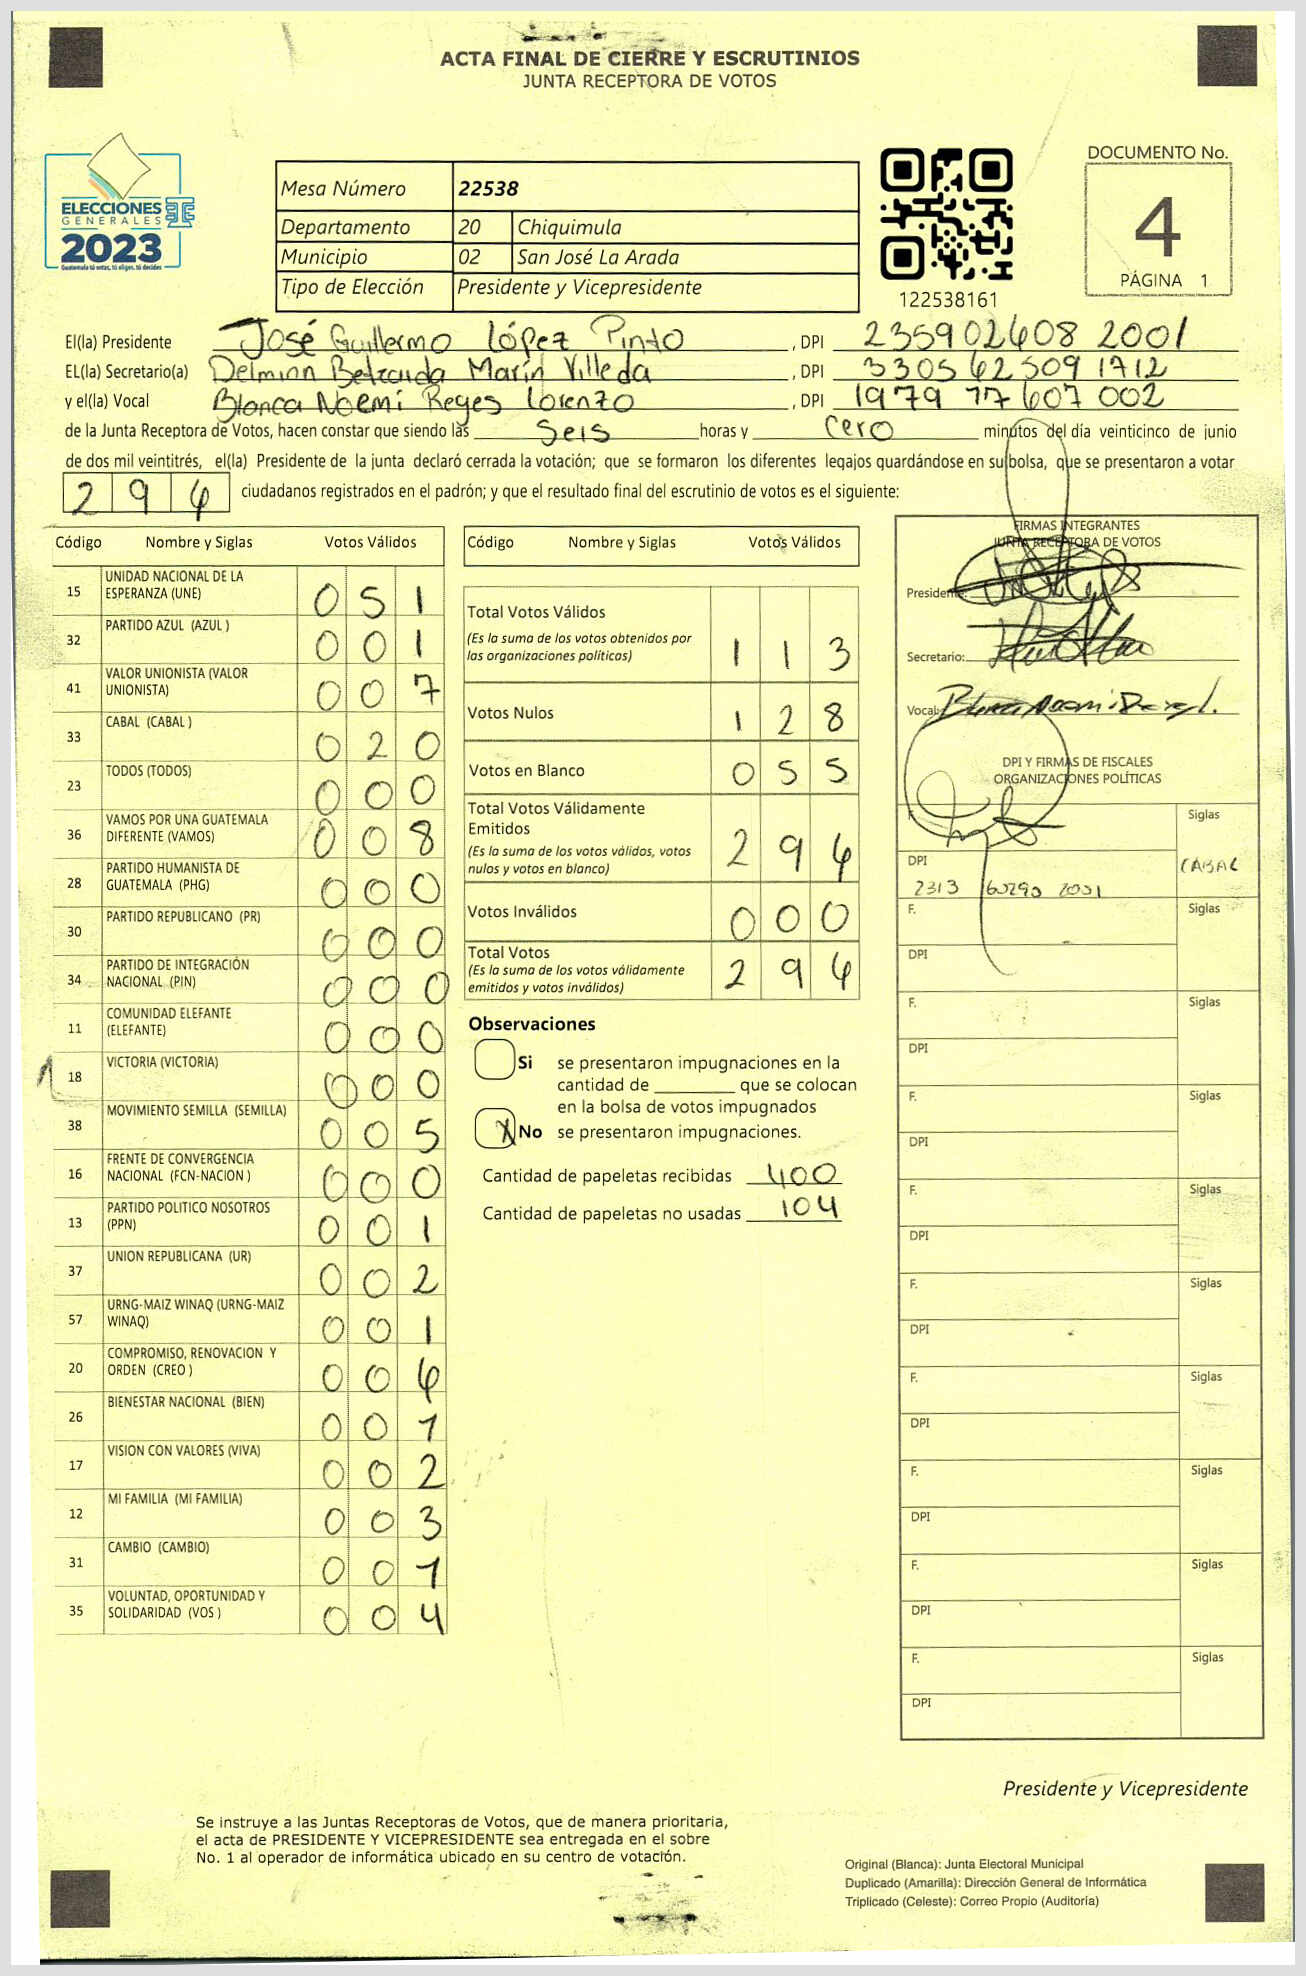 ACTA FINAL DE CIERRE Y ESCRUTINIOS
JUNTA RECEPTORA DE VOTOS
ELECCIONES
GENERALES
2023
Guatemala tú votas, tú eliges, tú decides
Mesa Número 22538
Departamento 20 Chiquimula
Municipio 02 San José La Arada
Tipo de Elección Presidente y Vicepresidente
122538161
DOCUMENTO No.
4
PÁGINA 1
El(la) Presidente José Guillermo López Pinto , DPI 235902408 2001
EL(la) Secretario(a) Delminn Betzaida Marín Villeda , DPI 3305 62509 1712
y el(la) Vocal Blanca Noemí Reyes Lorenzo , DPI 1979 77607 002
de la Junta Receptora de Votos, hacen constar que siendo las seis horas y cero minutos del día veinticinco de junio
de dos mil veintitrés, el(la) Presidente de la junta declaró cerrada la votación; que se formaron los diferentes legajos guardándose en su bolsa, que se presentaron a votar
294 ciudadanos registrados en el padrón; y que el resultado final del escrutinio de votos es el siguiente:
Código Nombre y Siglas Votos Válidos
15 UNIDAD NACIONAL DE LA
ESPERANZA (UNE) 051
32 PARTIDO AZUL (AZUL ) 001
41 VALOR UNIONISTA (VALOR
UNIONISTA) 007
33 CABAL (CABAL ) 020
23 TODOS (TODOS) 000
36 VAMOS POR UNA GUATEMALA
DIFERENTE (VAMOS) 008
28 PARTIDO HUMANISTA DE
GUATEMALA (PHG) 000
30 PARTIDO REPUBLICANO (PR) 000
34 PARTIDO DE INTEGRACIÓN
NACIONAL (PIN) 000
11 COMUNIDAD ELEFANTE
(ELEFANTE) 000
18 VICTORIA (VICTORIA) 000
38 MOVIMIENTO SEMILLA (SEMILLA) 005
16 FRENTE DE CONVERGENCIA
NACIONAL (FCN-NACION ) 000
13 PARTIDO POLITICO NOSOTROS
(PPN) 001
37 UNION REPUBLICANA (UR) 002
57 URNG-MAIZ WINAQ (URNG-MAIZ
WINAQ) 001
20 COMPROMISO, RENOVACION Y
ORDEN (CREO ) 004
26 BIENESTAR NACIONAL (BIEN) 001
17 VISION CON VALORES (VIVA) 002
12 MI FAMILIA (MI FAMILIA) 003
31 CAMBIO (CAMBIO) 001
35 VOLUNTAD, OPORTUNIDAD Y
SOLIDARIDAD (VOS ) 004
Código Nombre y Siglas Votos Válidos
Total Votos Válidos
(Es la suma de los votos obtenidos por
las organizaciones políticas) 113
Votos Nulos 128
Votos en Blanco 055
Total Votos Válidamente
Emitidos
(Es la suma de los votos válidos, votos
nulos y votos en blanco) 294
Votos Inválidos 000
Total Votos
(Es la suma de los votos válidamente
emitidos y votos inválidos) 294
Observaciones
Si se presentaron impugnaciones en la
cantidad de ________ que se colocan
en la bolsa de votos impugnados
X No se presentaron impugnaciones.
Cantidad de papeletas recibidas 400
Cantidad de papeletas no usadas 104
FIRMAS INTEGRANTES
JUNTA RECEPTORA DE VOTOS
Presidente:
Secretario:
Vocal:
DPI Y FIRMAS DE FISCALES
ORGANIZACIONES POLÍTICAS
F. Siglas
CABAL
DPI
2313 60290 2001
F. Siglas
DPI
F. Siglas
DPI
F. Siglas
DPI
F. Siglas
DPI
F. Siglas
DPI
F. Siglas
DPI
F. Siglas
DPI
F. Siglas
DPI
F. Siglas
DPI
Presidente y Vicepresidente
Se instruye a las Juntas Receptoras de Votos, que de manera prioritaria,
el acta de PRESIDENTE Y VICEPRESIDENTE sea entregada en el sobre
No. 1 al operador de informática ubicado en su centro de votación.
Original (Blanca): Junta Electoral Municipal
Duplicado (Amarilla): Dirección General de Informática
Triplicado (Celeste): Correo Propio (Auditoría)